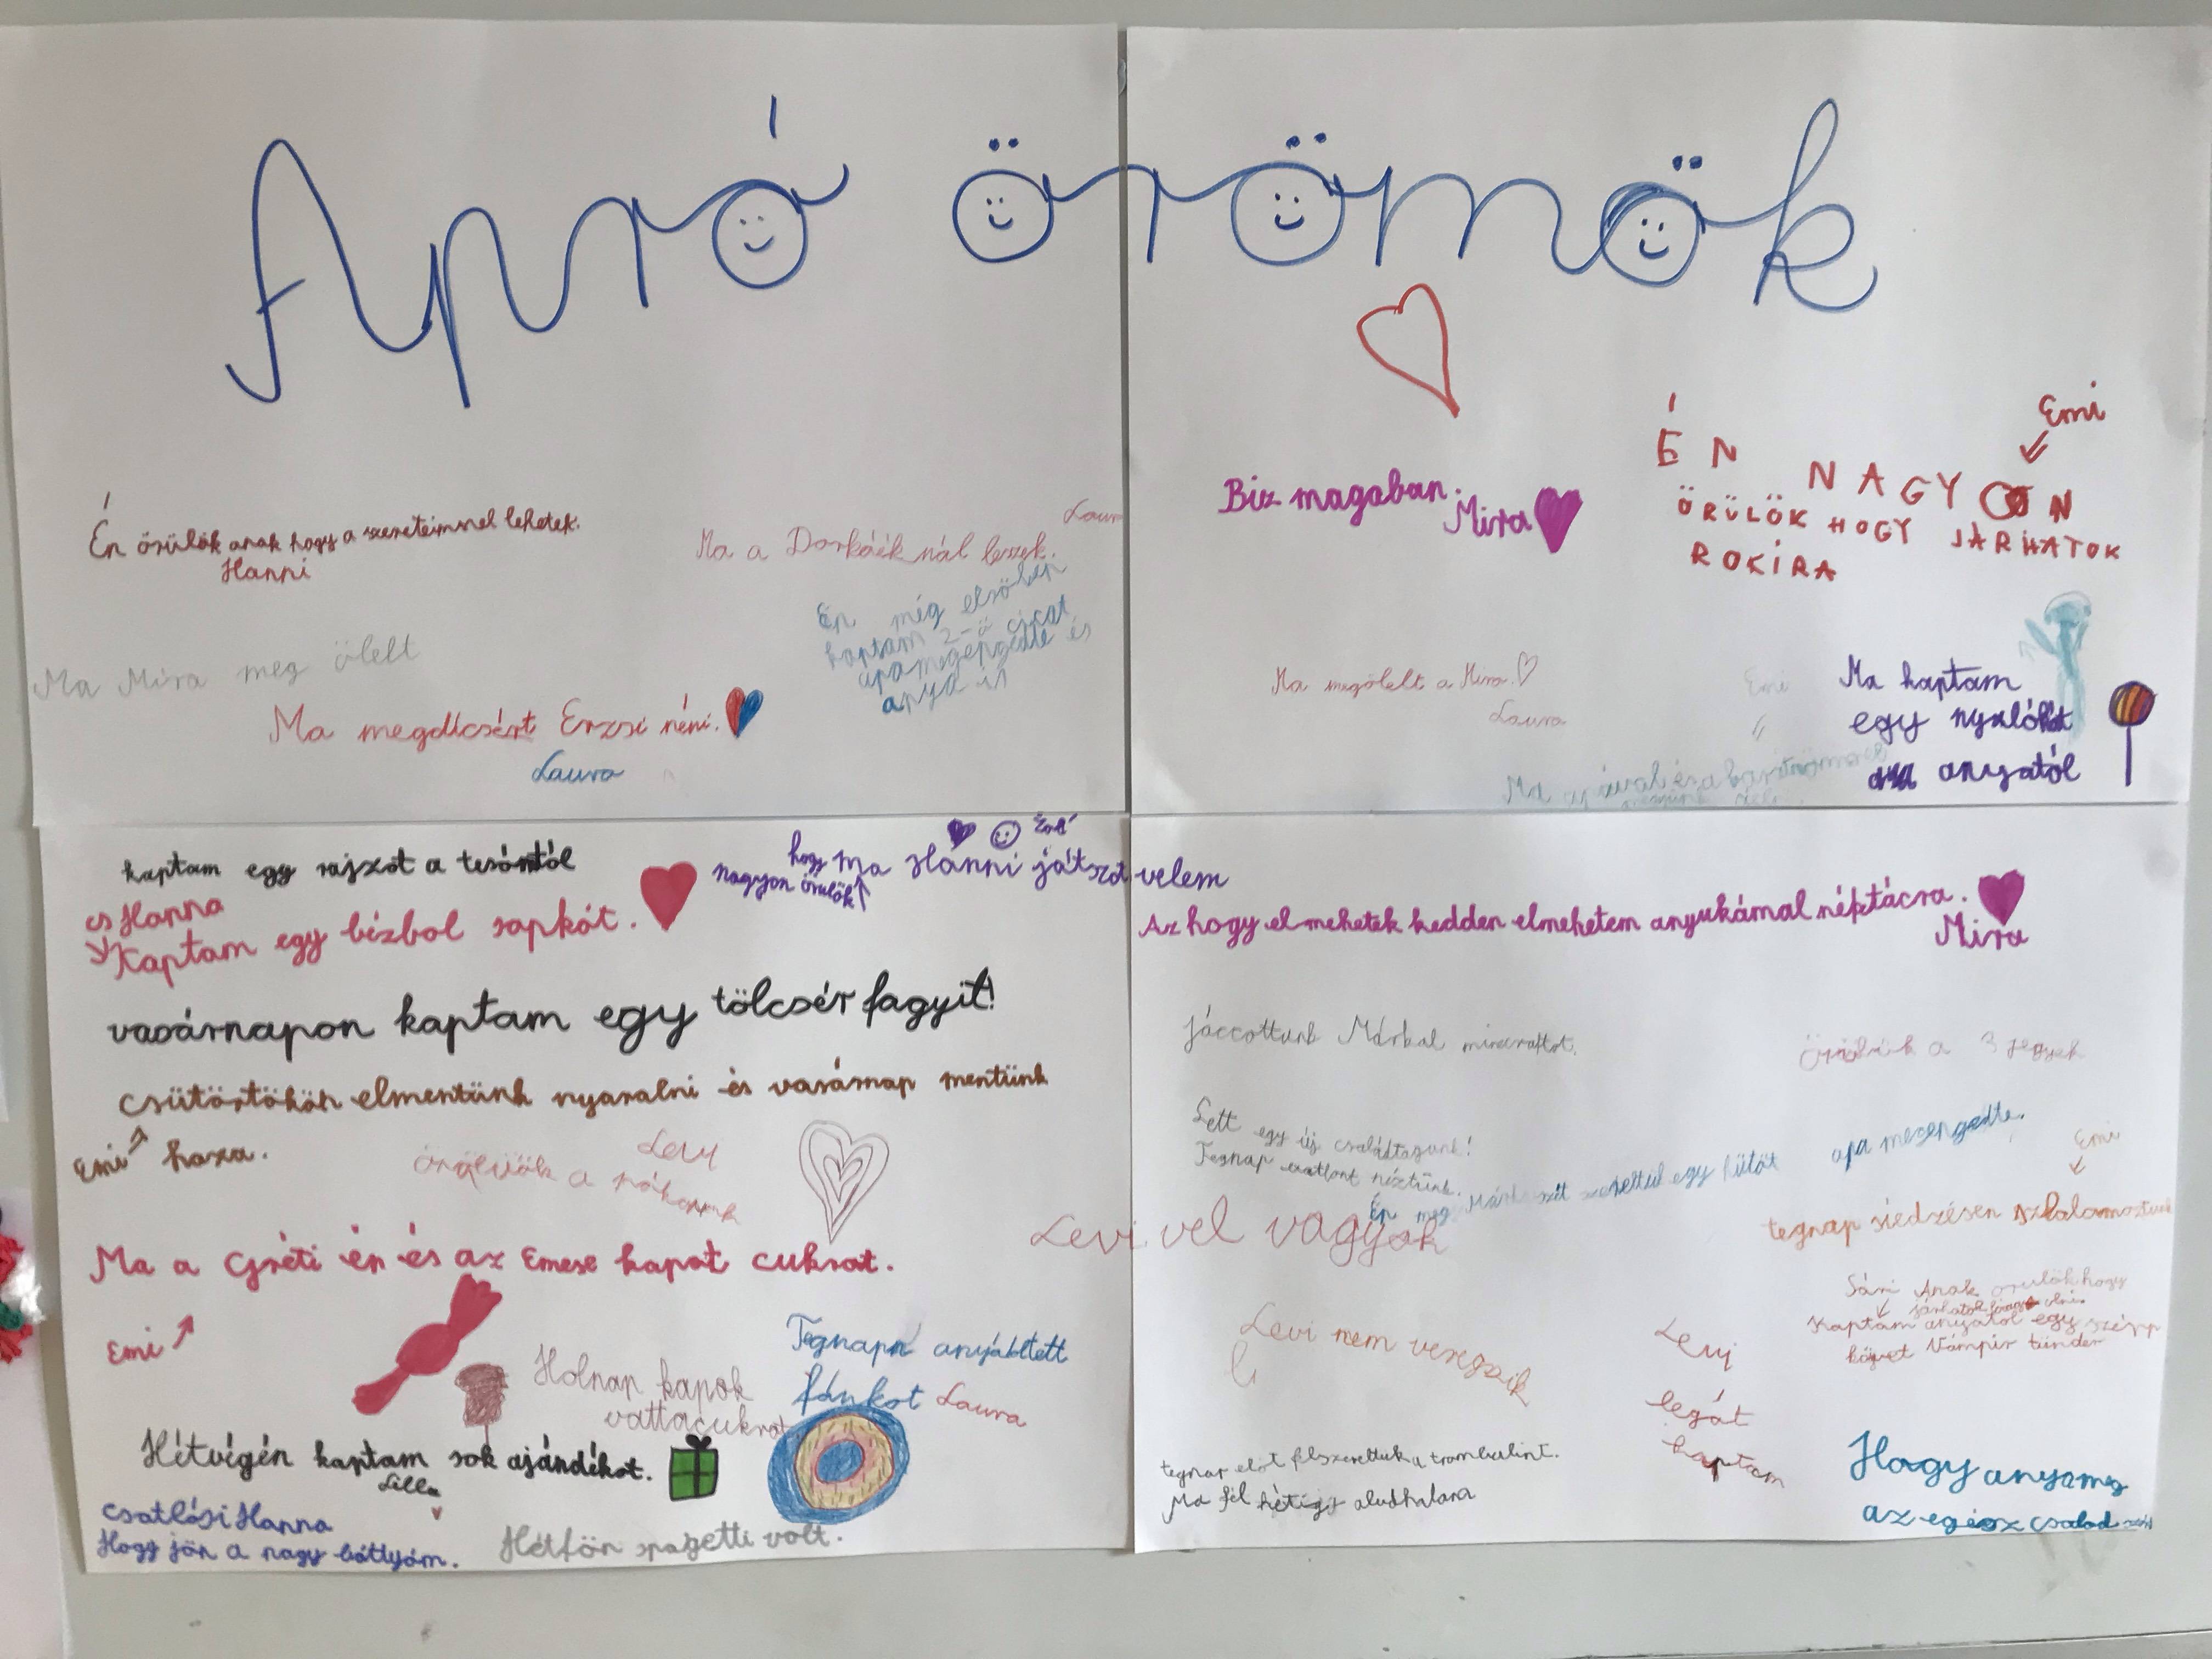 Apró örömök
Én örülök anak hogy a szereteimmel lehetek.
Hanni
Laura
Ma a Dorkáéknál leszek.
Én még elsőben
kaptam 2-ő cicat
apa megengedte és
anya is
Ma Míra meg ölelt
Ma megdícsért Erzsi néni.
Laura
Biz magaban.
Mira
Emi
ÉN NAGYON
ÖRÜLÖK HOGY JÁRHATOK
ROKIRA
Ma megölelt a Mira.
Laura
Emi
Ma kaptam
egy nyalókat
anyatól
Ma apával és a barátnőmmel
kaptam egy rajzot a tesómtól
nagyon örülök hogy ma Hanni játszot velem
cs Hanna
Kaptam egy bézbol sapkát.
vasárnapon kaptam egy tölcsér fagyit!
csütörtökön elmentünk nyaralni és vasárnap mentünk
Emi haza.
Levi
örülök a
Ma a Gréti én és az Emese kapot cukrot.
Emi
Holnap kapok
vattacukrot
Tegnap anyáltett
fánkot Laura
Hétvégén kaptam sok ajándékot.
Lilla
csatlósi Hanna
Hogy jön a nagy báttyám.
Hétfőn spagetti volt.
Az hogy elmehetek kedden elmehetem anyukámal néptácra.
Mira
jáccottunk Márkal minecraftot.
Örülök a 3 jegyek
Lett egy új családtagunk!
Tegnap néztünk.
Én meg egy apa megengedte.
Emi
tegnap siedzésen szlalomoztunk
Levi vel vagyok
Sári Anak örülök hogy
járhatok
Kaptam anyától egy szépp
követ Vámpír tünder
Levi nem verszik
Levi
legót
kaptam
tegnap elöt felszereltük a trambulint.
Ma fél hétigg aludhatara
Hogy anyameg
az egész csalad